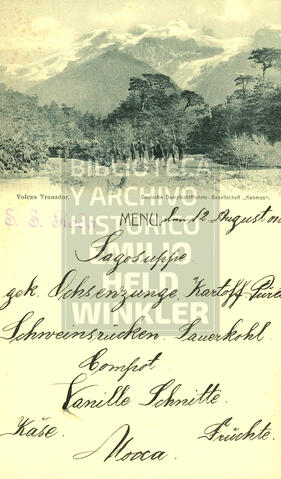 BIBLIOTECA
Y ARCHIVO
HISTORICO
EMILIO
HELD
WINKLER
Volcan Tronador.
Deutsche Dampfschifffahrts-Gesellschaft „Kosmos“.
S. S.
MENU, den 12 August
Sagosuppe
gek. Ochsenzunge. Kartoff. Püree
Schweinsrücken. Sauerkohl.
Compot
Vanille Schnitte.
Käse. Früchte.
Mocca.